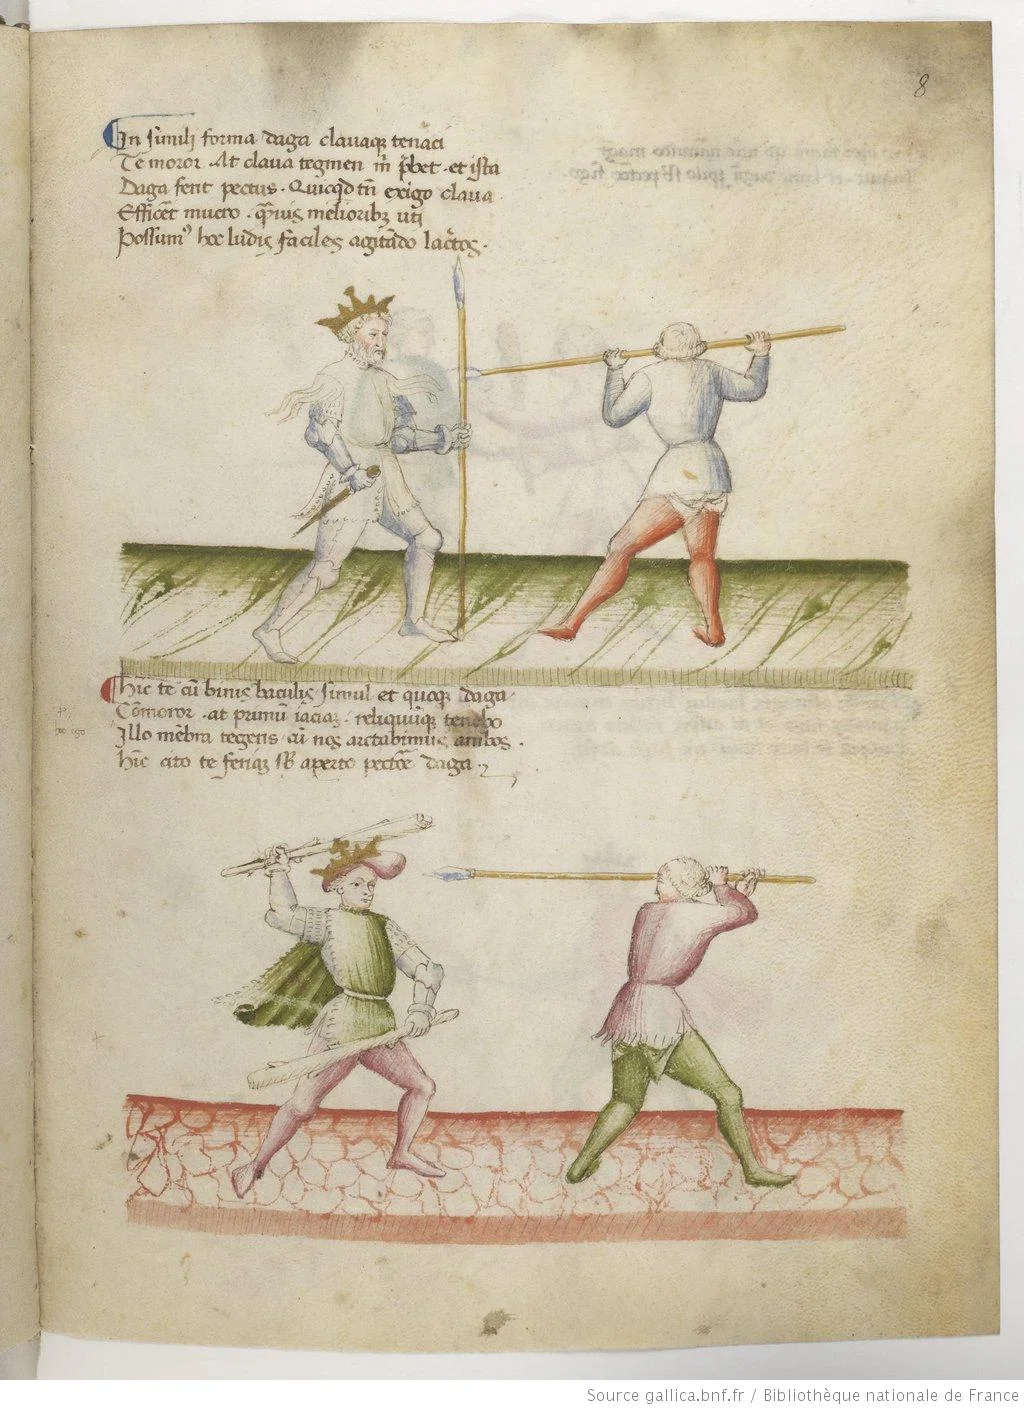 8
In simili forma daga clavaqꝫ tenaci
Te moror · At clava tegmen m̃ p̃bet · et ista
Daga ferit pectus · Quicqd tñ exigo clava
Efficet mucro · melioribꝫ uti
Possum⁹ hoc ludis faciles agitãdo lac̃tos ·
Hic te cũ binis baculis simul et quoqꝫ daga
Cõmoror · at primũ iaciaꝫ · reliquũqꝫ tenebo
Illo mẽbra tegens · cũ nos arctabimus ambos ·
Hic cito te feriaꝫ sb aperto pectore daga ·
Source gallica.bnf.fr / Bibliothèque nationale de France